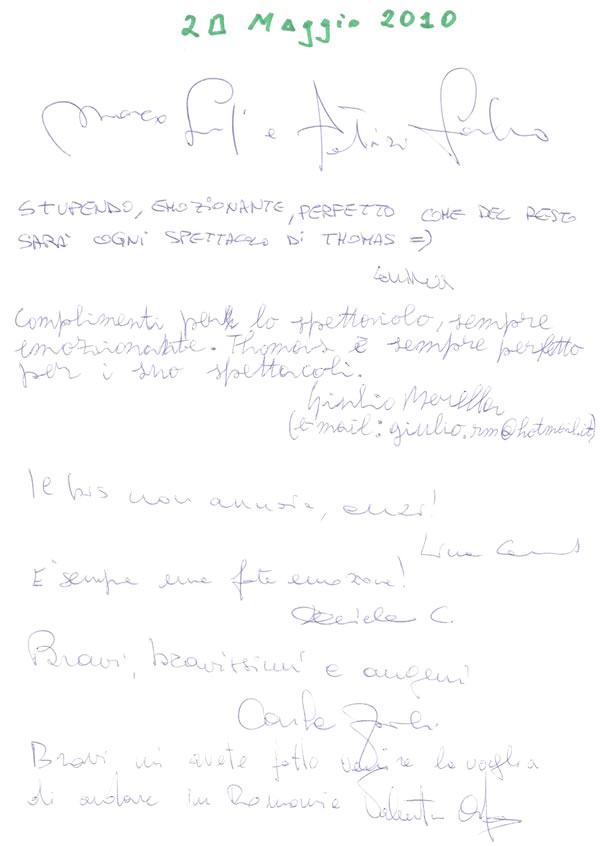 20 Maggio 2010
Marco e
STUPENDO, EMOZIONANTE, PERFETTO COME DEL RESTO
SARA' OGNI SPETTACOLO DI THOMAS =)
Complimenti per lo spettacolo, sempre
emozionante. Thomas è sempre perfetto
per i suo spettacoli.
Giulio
(e-mail: giulio.rm@hotmail.it)
Il bis non annoia, anzi!
Lina
E' sempre una forte emozione!
C.
Bravi, bravissimi e auguri
Carla
Bravi, mi avete fatto venire la voglia
di andare in Romania